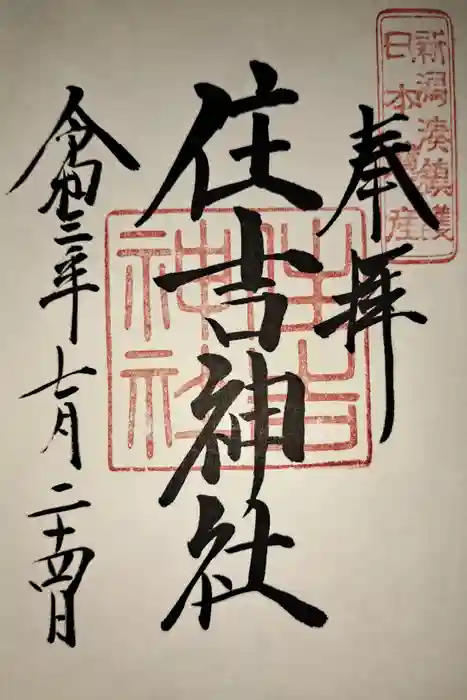 新潟湊鎮護
日本
産
奉拝
住吉神社
住吉
神社
令和三年七月二十四日